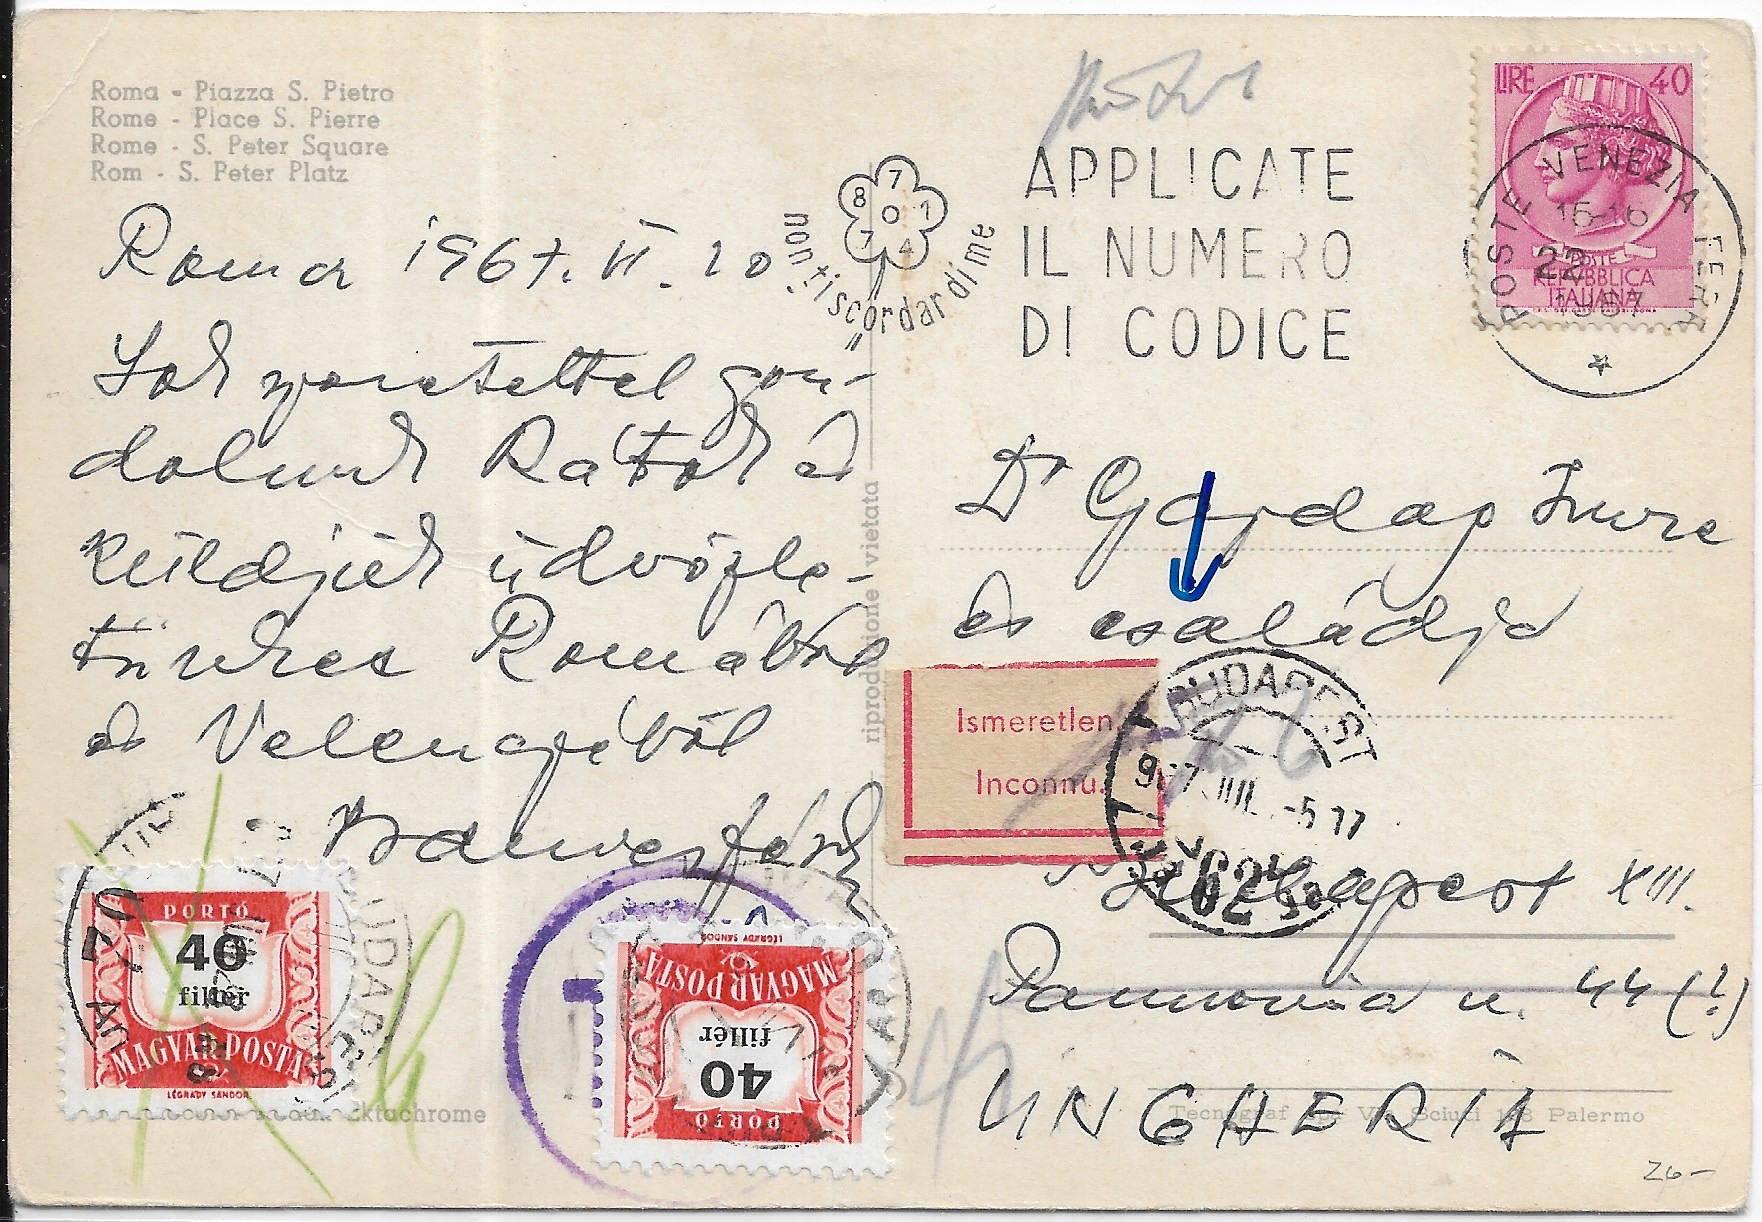 Roma - Piazza S. Pietro
Rome - Place S. Pierre
Rome - S. Peter Square
Rom - S. Peter Platz
Roma 1967. VI. 20
Sok szeretettel gon-
dolunk Rátok és
küldjük üdvözle-
tünket Romából
és Velencéből
8 7 1 4 7 0
"non ti scordar di me"
APPLICATE
IL NUMERO
DI CODICE
LIRE 40
POSTE
REPVBBLICA
ITALIANA
POSTE VENEZIA FERR
15-16
22
1967
riproduzione vietata
Dr Imre
és családja
Ismeretlen
Inconnu.
BUDAPEST
967 JUL. -5 17
62
Budapest XIII.
Pannonia u. 44 (?)
UNGHERIA
Tecnograf Via Sciuti 168 Palermo
ektachrome
PORTÓ
40
fillér
MAGYAR POSTA
LÉGRÁDY SÁNDOR
T
PORTÓ
40
fillér
MAGYAR POSTA
LÉGRÁDY SÁNDOR
26-